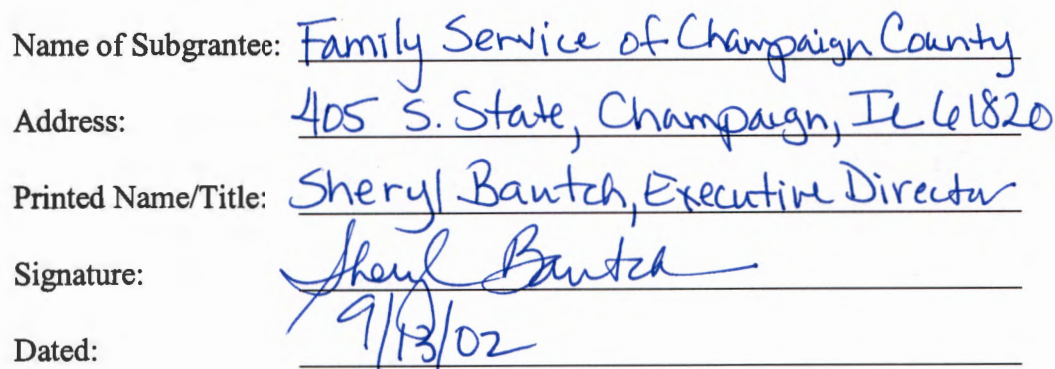 Name of Subgrantee: Family Service of Champaign County
Address: 405 S. State, Champaign, IL 61820
Printed Name/Title: Sheryl Bautch, Executive Director
Signature: Sheryl Bautch
Dated: 9/13/02